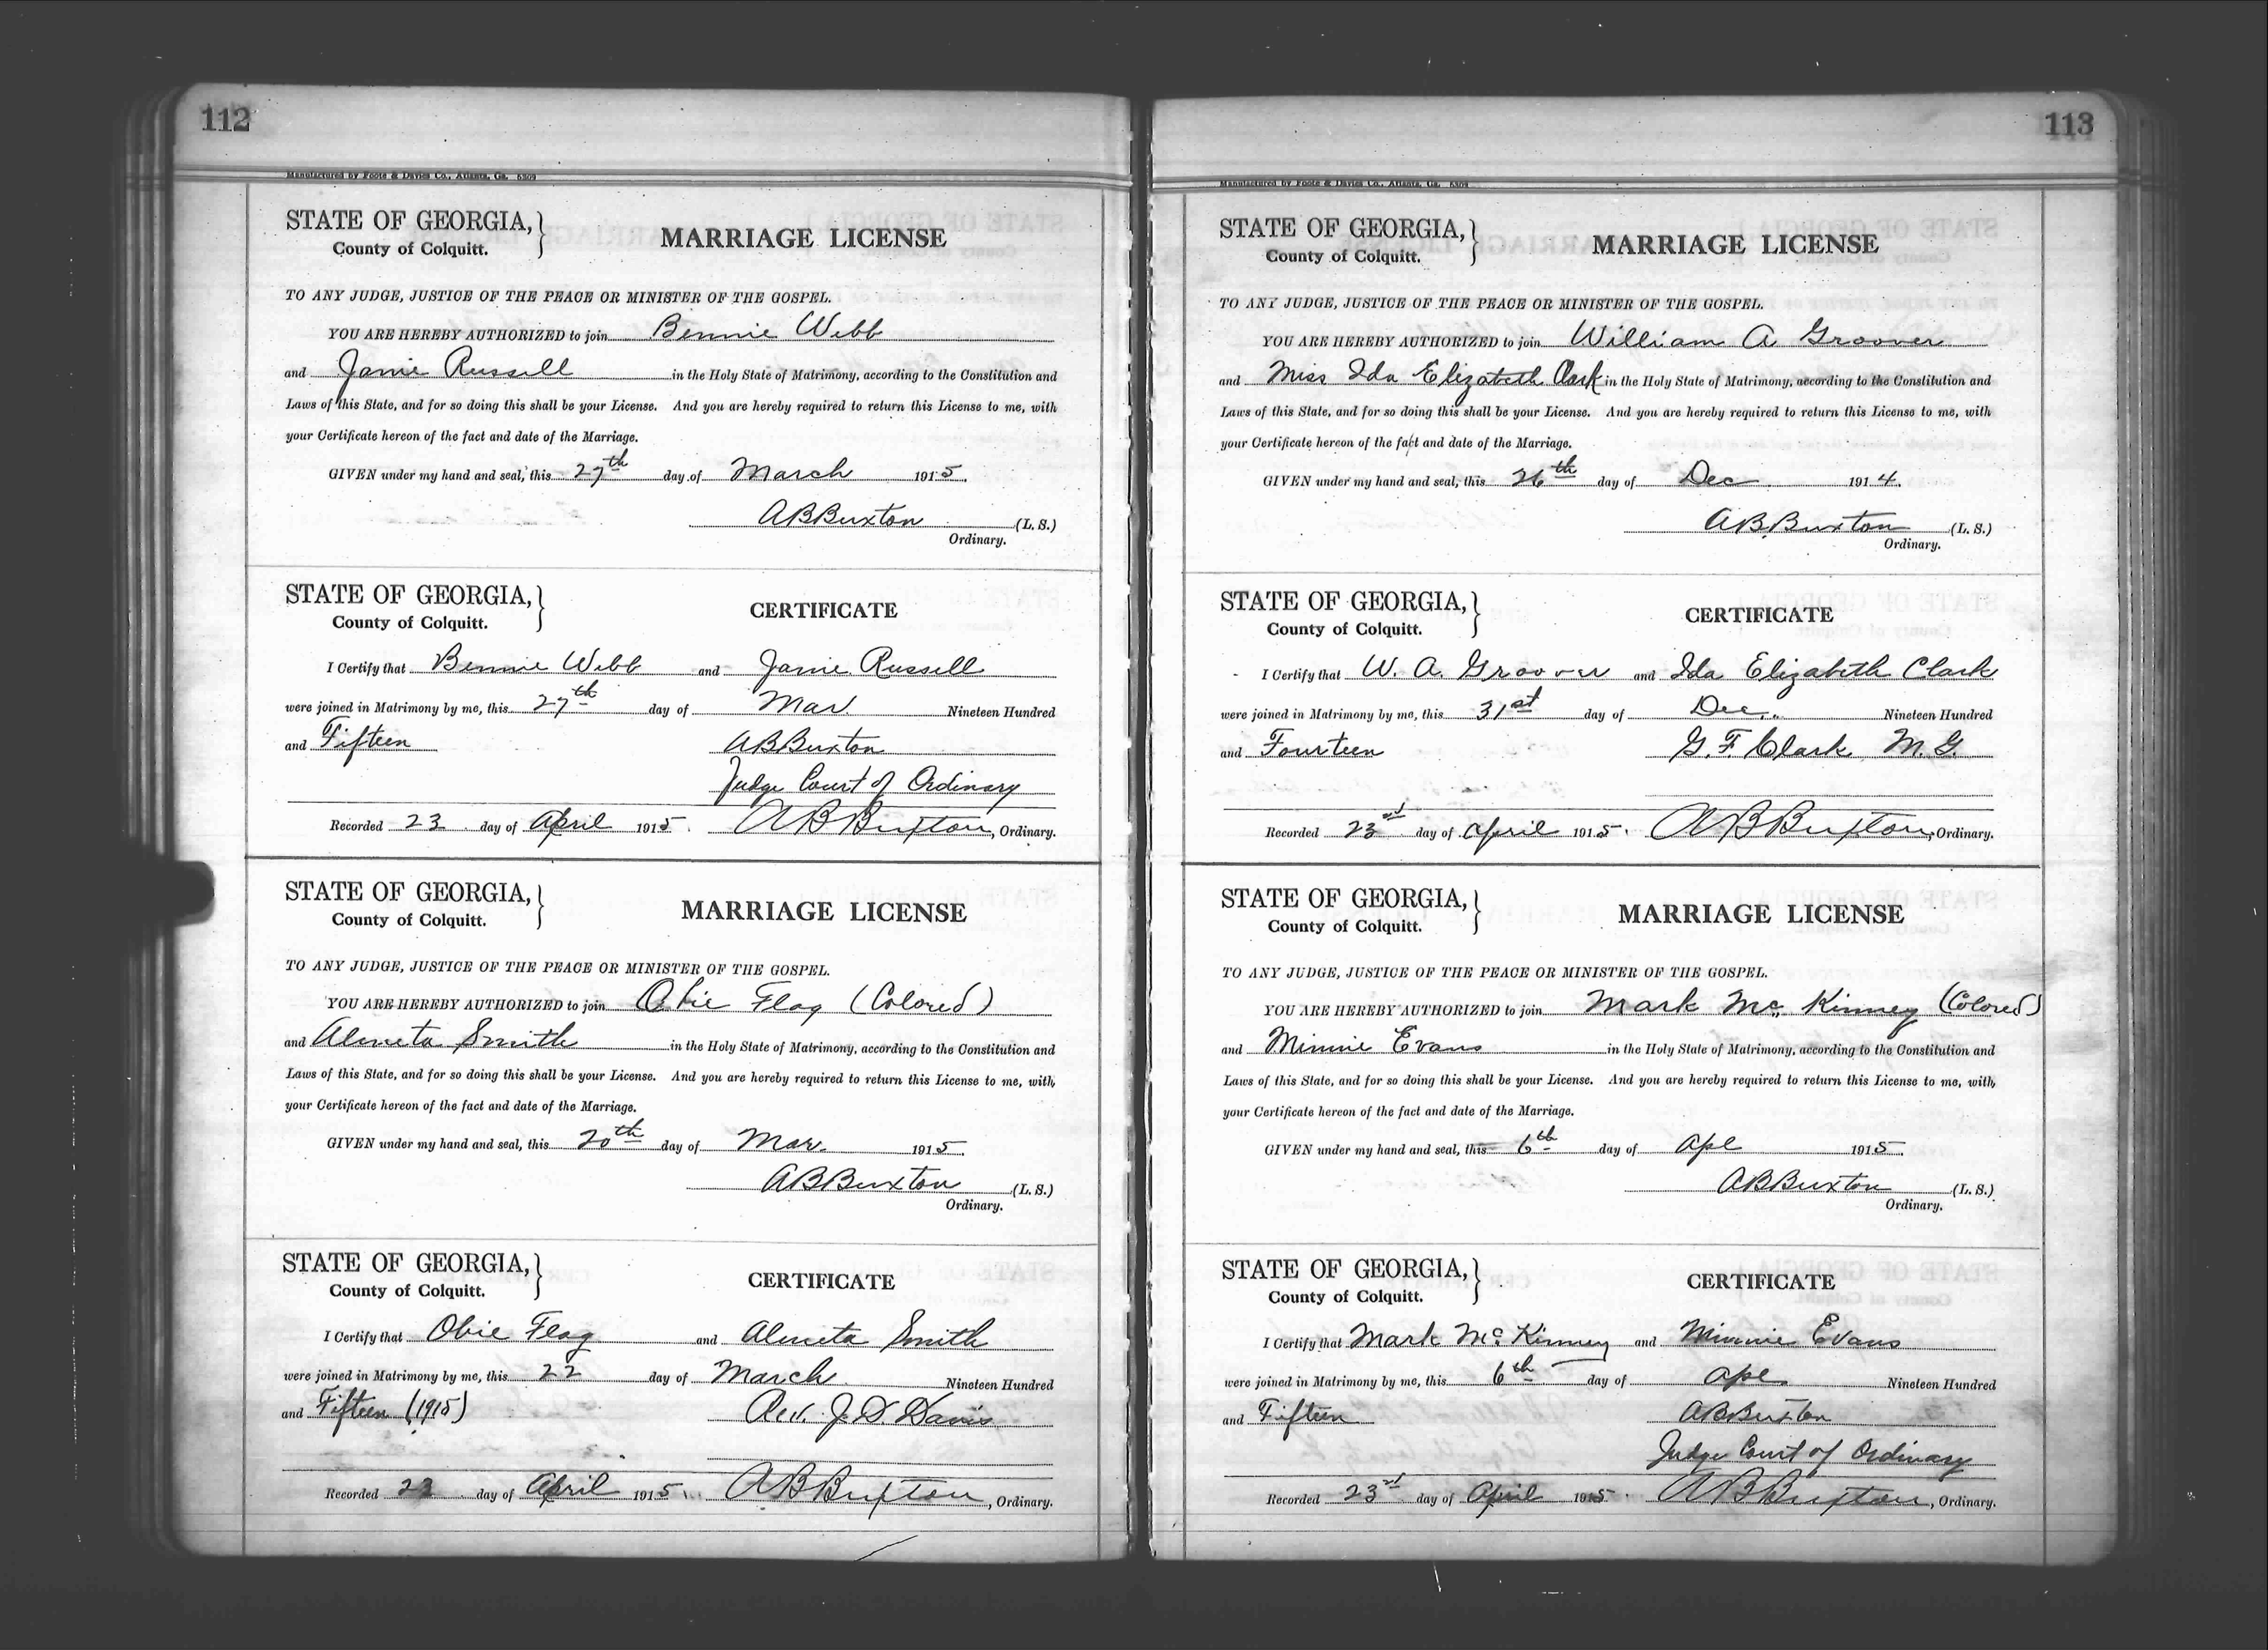 112
Manufactured by Foote & Davies Co., Atlanta, Ga. 5309
STATE OF GEORGIA,
County of Colquitt.
MARRIAGE LICENSE
TO ANY JUDGE, JUSTICE OF THE PEACE OR MINISTER OF THE GOSPEL.
YOU ARE HEREBY AUTHORIZED to join Bennie Webb
and Janie Russell in the Holy State of Matrimony, according to the Constitution and
Laws of this State, and for so doing this shall be your License. And you are hereby required to return this License to me, with
your Certificate hereon of the fact and date of the Marriage.
GIVEN under my hand and seal, this 27th day of March 1915.
A B Buxton (L. S.)
Ordinary.
STATE OF GEORGIA,
County of Colquitt.
CERTIFICATE
I Certify that Bennie Webb and Janie Russell
were joined in Matrimony by me, this 27th day of Mar Nineteen Hundred
and Fifteen A B Buxton
Judge Court of Ordinary
Recorded 23 day of April 1915. A B Buxton, Ordinary.
STATE OF GEORGIA,
County of Colquitt.
MARRIAGE LICENSE
TO ANY JUDGE, JUSTICE OF THE PEACE OR MINISTER OF THE GOSPEL.
YOU ARE HEREBY AUTHORIZED to join Obie Flag (Colored)
and Almeta Smith in the Holy State of Matrimony, according to the Constitution and
Laws of this State, and for so doing this shall be your License. And you are hereby required to return this License to me, with
your Certificate hereon of the fact and date of the Marriage.
GIVEN under my hand and seal, this 20th day of Mar. 1915.
A B Buxton (L. S.)
Ordinary.
STATE OF GEORGIA,
County of Colquitt.
CERTIFICATE
I Certify that Obie Flag and Almeta Smith
were joined in Matrimony by me, this 22 day of March Nineteen Hundred
and Fifteen (1915) Rev. J. D Davis
Recorded 23 day of April 1915. A B Buxton, Ordinary.
113
Manufactured by Foote & Davies Co., Atlanta, Ga. 5309
STATE OF GEORGIA,
County of Colquitt.
MARRIAGE LICENSE
TO ANY JUDGE, JUSTICE OF THE PEACE OR MINISTER OF THE GOSPEL.
YOU ARE HEREBY AUTHORIZED to join William A Groover
and Miss Ida Elizabeth Clark in the Holy State of Matrimony, according to the Constitution and
Laws of this State, and for so doing this shall be your License. And you are hereby required to return this License to me, with
your Certificate hereon of the fact and date of the Marriage.
GIVEN under my hand and seal, this 26th day of Dec 1914.
A B Buxton (L. S.)
Ordinary.
STATE OF GEORGIA,
County of Colquitt.
CERTIFICATE
I Certify that W. A. Groover and Ida Elizabeth Clark
were joined in Matrimony by me, this 31st day of Dec. Nineteen Hundred
and Fourteen G. F. Clark M. G.
Recorded 23rd day of April 1915. A B Buxton, Ordinary.
STATE OF GEORGIA,
County of Colquitt.
MARRIAGE LICENSE
TO ANY JUDGE, JUSTICE OF THE PEACE OR MINISTER OF THE GOSPEL.
YOU ARE HEREBY AUTHORIZED to join Mark Mc Kinney (Colored)
and Minnie Evans in the Holy State of Matrimony, according to the Constitution and
Laws of this State, and for so doing this shall be your License. And you are hereby required to return this License to me, with
your Certificate hereon of the fact and date of the Marriage.
GIVEN under my hand and seal, this 6th day of Apl 1915.
A B Buxton (L. S.)
Ordinary.
STATE OF GEORGIA,
County of Colquitt.
CERTIFICATE
I Certify that Mark Mc Kinney and Minnie Evans
were joined in Matrimony by me, this 6th day of Apl Nineteen Hundred
and Fifteen A B Buxton
Judge Court of Ordinary
Recorded 23rd day of April 1915. A B Buxton, Ordinary.